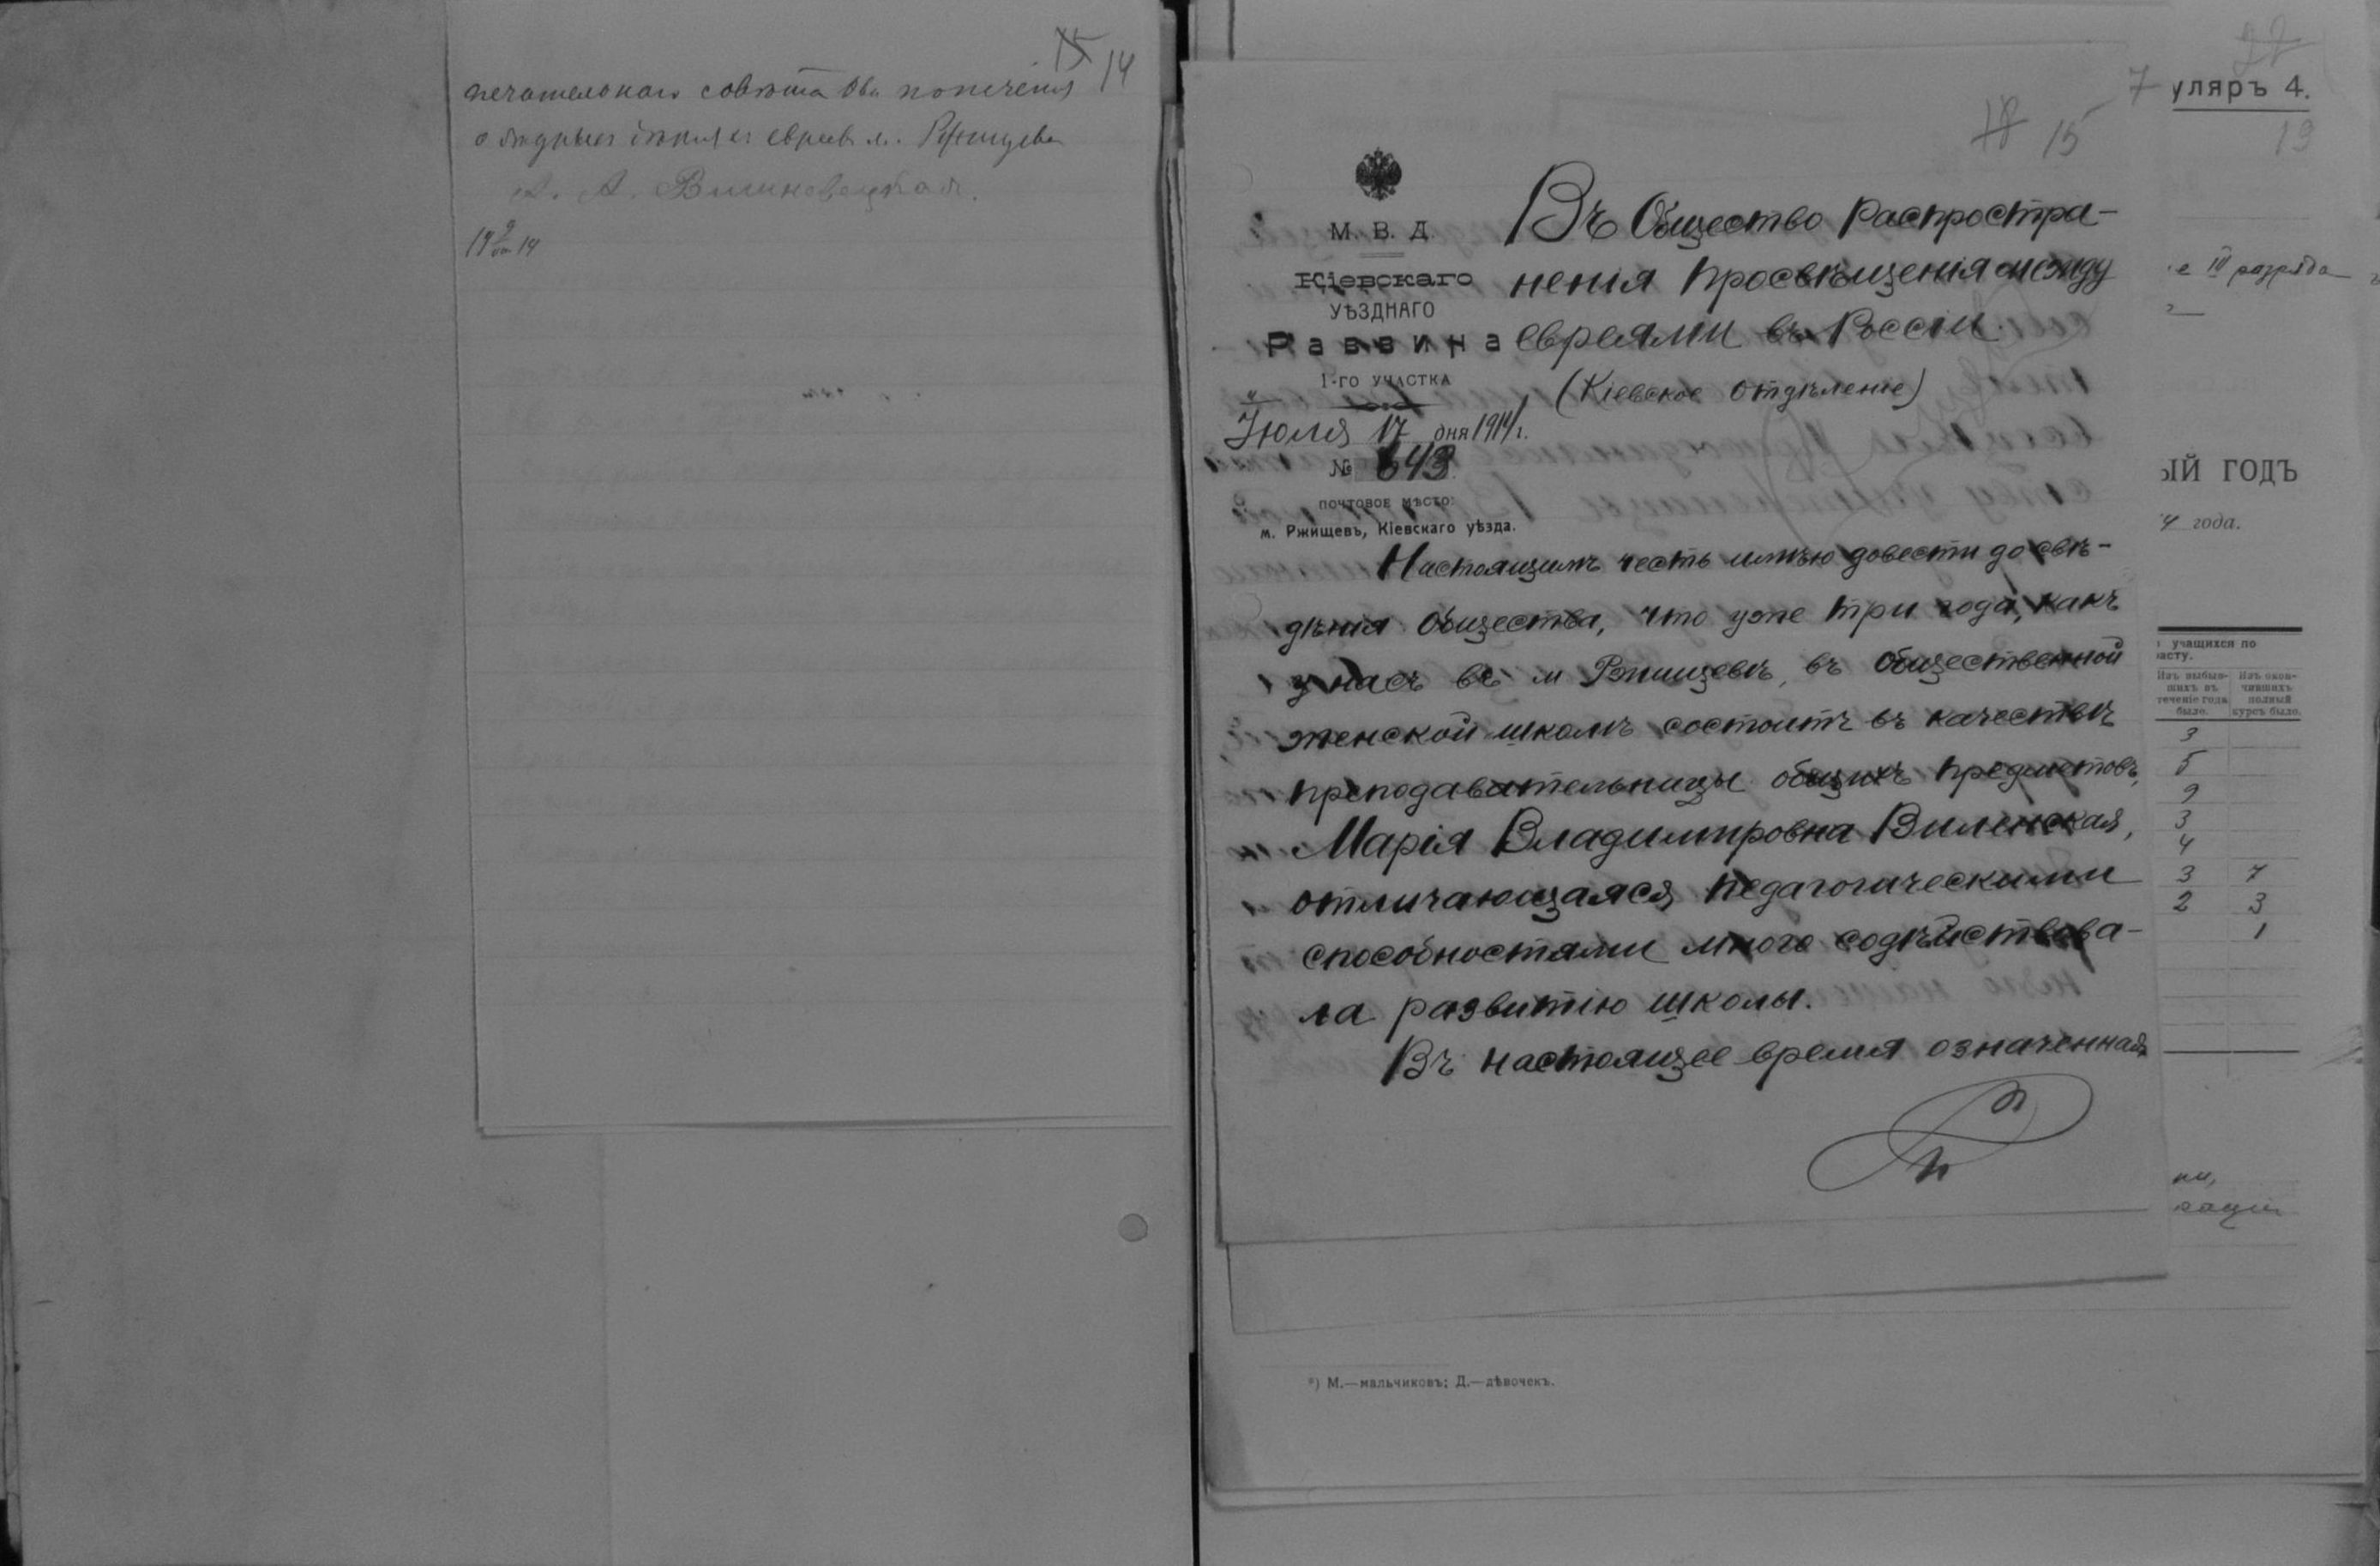 15 14
печательнаго совѣта О-ва попеченія
о бѣдныхъ дѣтяхъ евреевъ м. Ржищева
А. Вишновецкая.
19 14
18 15
М. В. Д.
Кіевскаго
УѢЗДНАГО
Раввина
1-го УЧАСТКА
Іюля 17 дня 1914 г.
№ 643
ПОЧТОВОЕ МѢСТО:
м. Ржищевъ, Кіевскаго уѣзда.
Въ Общество Распростра-
ненія Просвѣщенія между
евреями въ Россіи.
(Кіевское Отдѣленіе)
Настоящимъ честь имѣю довести до свѣ-
дѣнія Общества, что уже три года, какъ
у насъ въ м Ржищевѣ, въ Общественной
женской школѣ состоитъ въ качествѣ
преподавательницы общихъ предметовъ,
Марія Владимировна Виленская,
отличающаяся педагогическими
способностями много содѣйствова-
ла развитію школы.
Въ настоящее время означенная
*) М.—мальчиковъ; Д.—дѣвочекъ.
22
7
уляръ 4.
19
е III разряда
ЫЙ ГОДЪ
4 года.
учащихся по
асту.
Изъ выбыв-
шихъ въ
теченіе года
было.
Изъ окон-
чившихъ
полный
курсъ было.
3
5
9
3
4
3 7
2 3
1